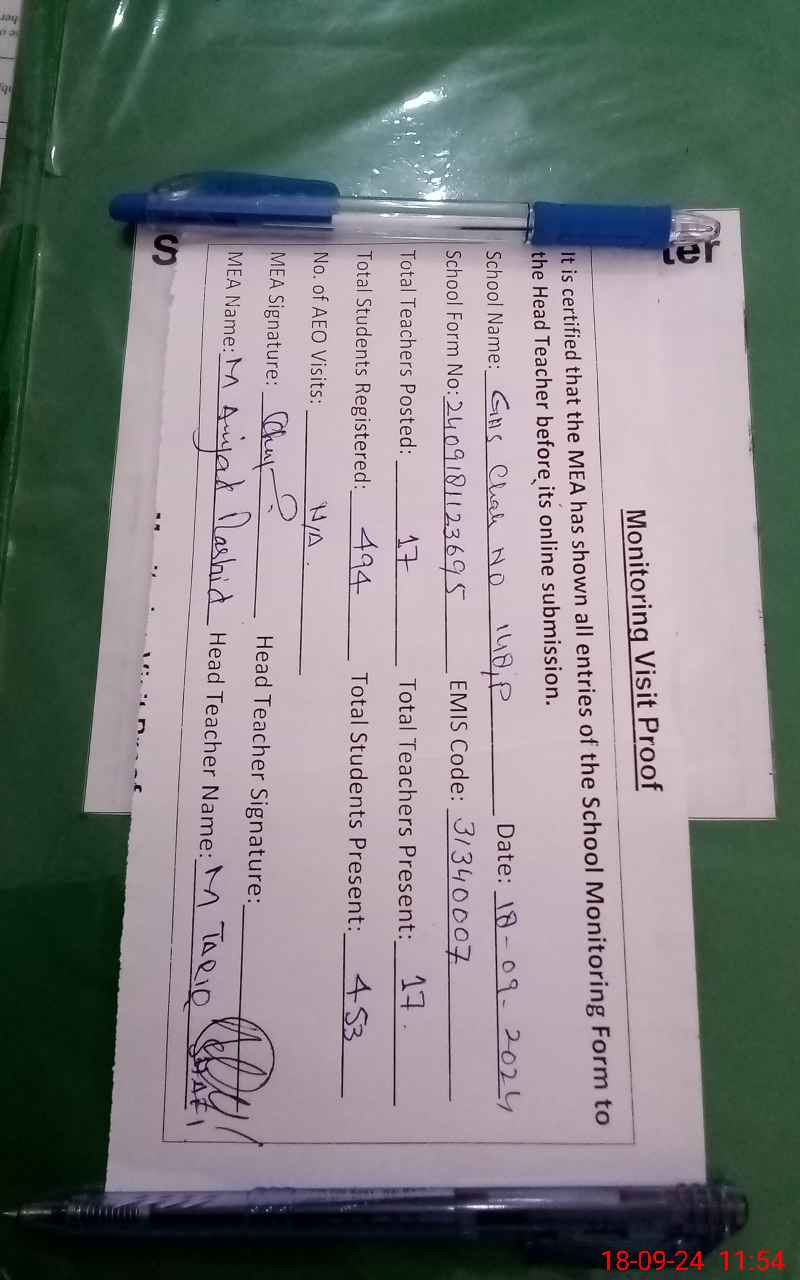 Monitoring Visit Proof
It is certified that the MEA has shown all entries of the School Monitoring Form to
the Head Teacher before its online submission.
School Name: GHS Chak No 148/P Date: 18-09-2024
School Form No: 2409181123695 EMIS Code: 31340007
Total Teachers Posted: 17 Total Teachers Present: 17.
Total Students Registered: 494 Total Students Present: 453
No. of AEO Visits: N/A.
MEA Signature: Head Teacher Signature:
MEA Name: M Amjad Rashid Head Teacher Name: M TARIQ SHAFI
18-09-24 11:54